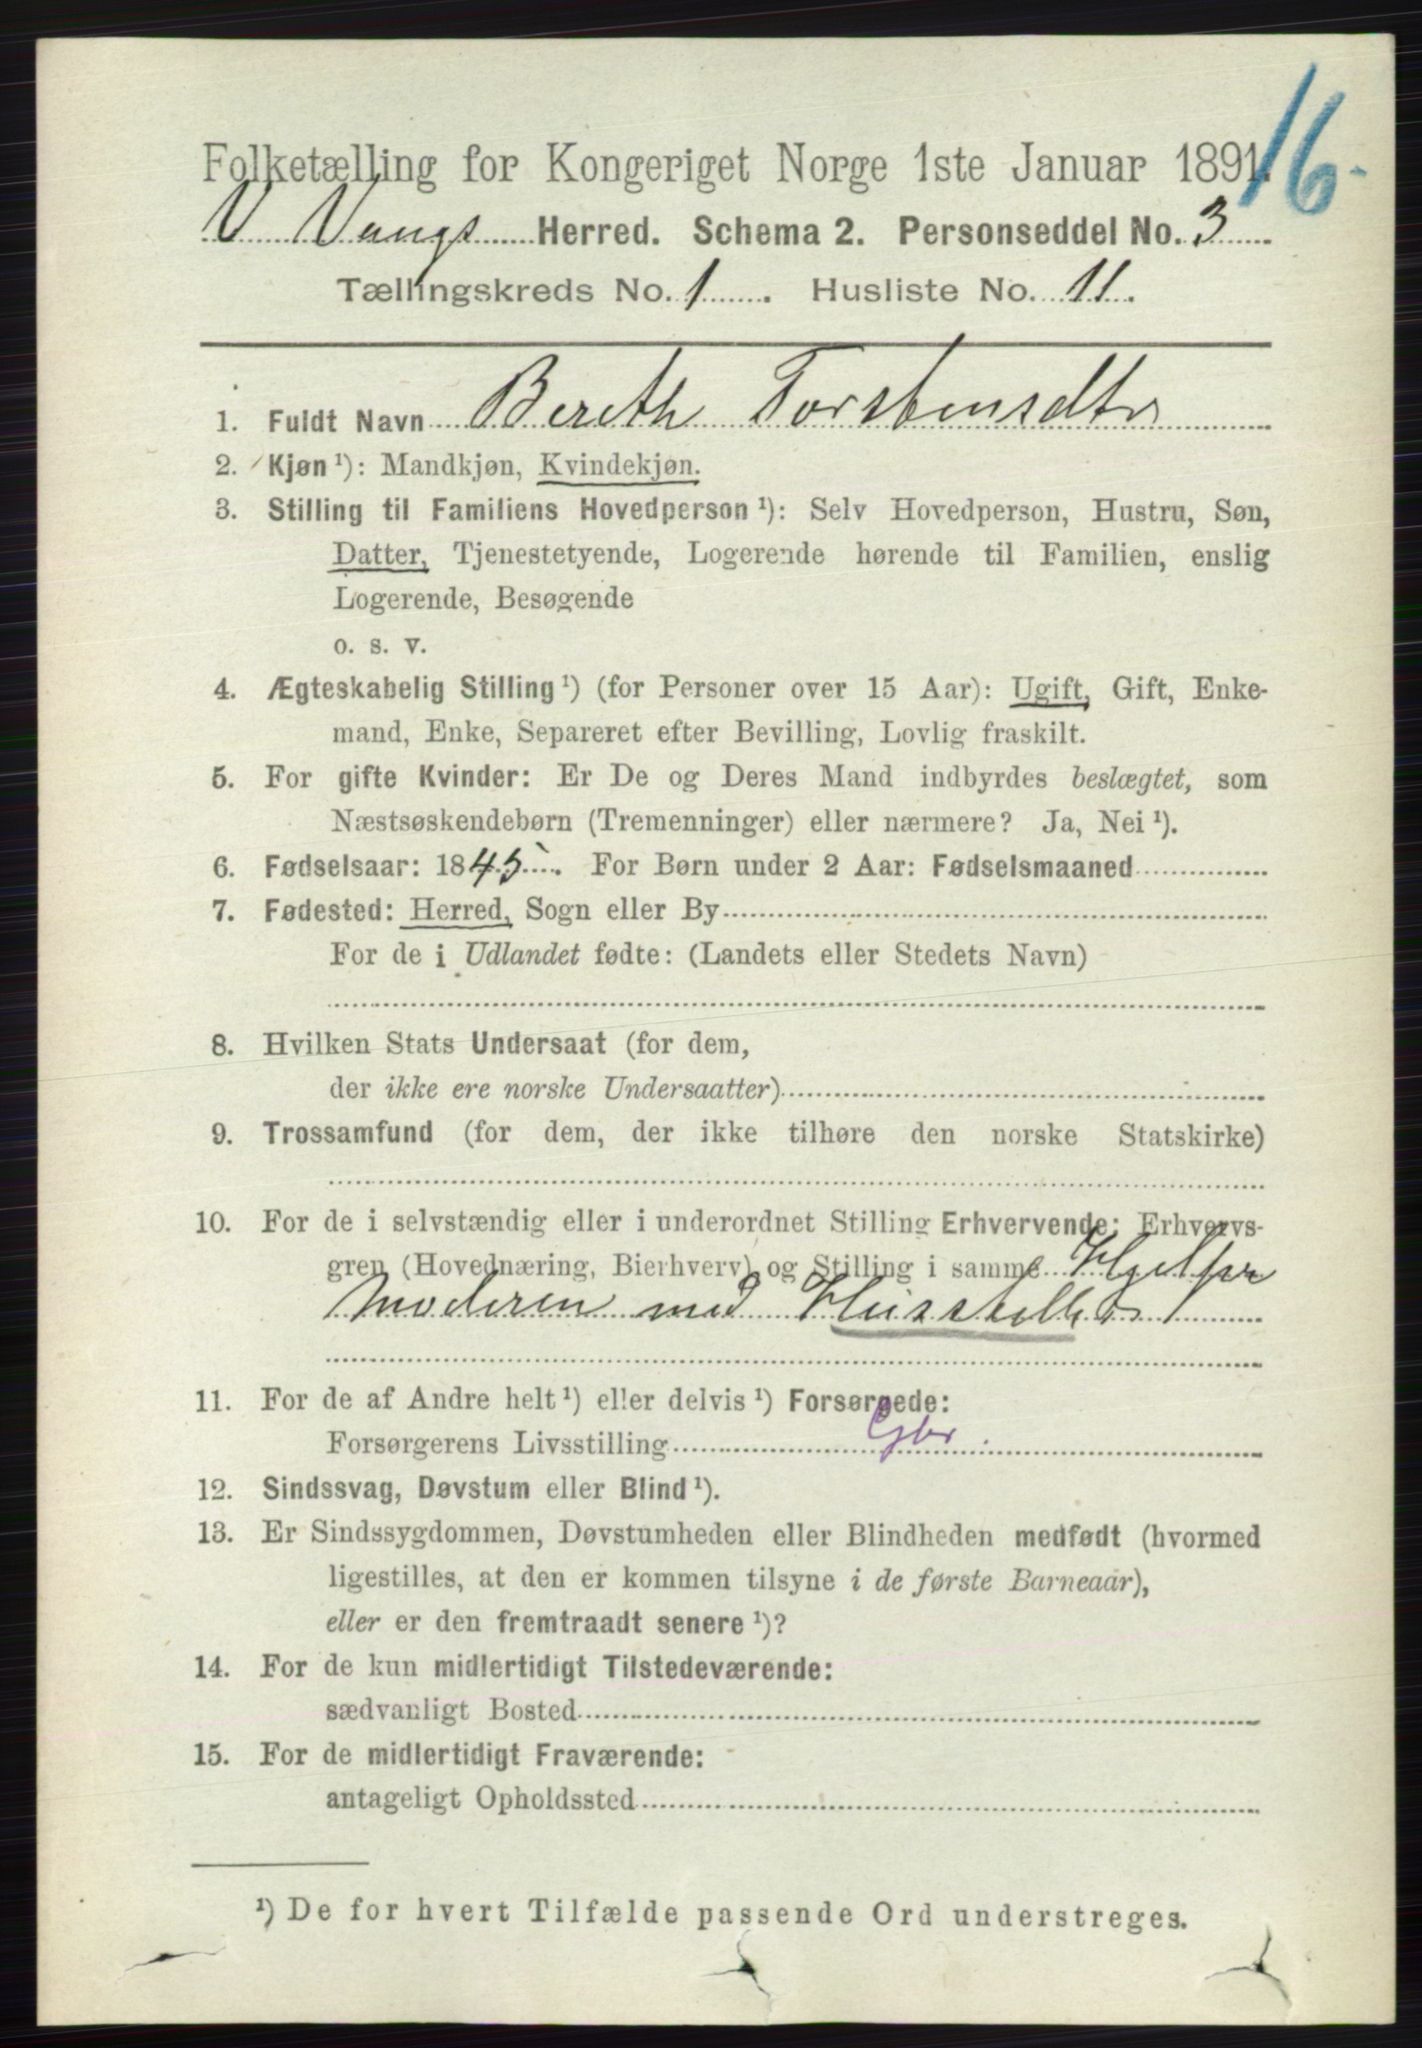 16.
Folketælling for Kongeriget Norge 1ste Januar 1891.
V Vangs Herred. Schema 2. Personseddel No. 3
Tællingskreds No. 1. Husliste No. 11.
1. Fuldt Navn Bereth Torstensdtr
2. Kjøn ¹): Mandkjøn, Kvindekjøn.
3. Stilling til Familiens Hovedperson ¹): Selv Hovedperson, Hustru, Søn,
Datter, Tjenestetyende, Logerende hørende til Familien, enslig
Logerende, Besøgende
o. s. v.
4. Ægteskabelig Stilling ¹) (for Personer over 15 Aar): Ugift, Gift, Enke-
mand, Enke, Separeret efter Bevilling, Lovlig fraskilt.
5. For gifte Kvinder: Er De og Deres Mand indbyrdes beslægtet, som
Næstsøskendebørn (Tremenninger) eller nærmere? Ja, Nei ¹).
6. Fødselsaar: 1845. For Børn under 2 Aar: Fødselsmaaned
7. Fødested: Herred, Sogn eller By
For de i Udlandet fødte: (Landets eller Stedets Navn)
8. Hvilken Stats Undersaat (for dem,
der ikke ere norske Undersaatter)
9. Trossamfund (for dem, der ikke tilhøre den norske Statskirke)
10. For de i selvstændig eller i underordnet Stilling Erhvervende: Erhvervs-
gren (Hovednæring, Bierhverv) og Stilling i samme Hjelper
Moderen med Husstellet
11. For de af Andre helt ¹) eller delvis ¹) Forsørgede:
Forsørgerens Livsstilling Gbr.
12. Sindssvag, Døvstum eller Blind ¹).
13. Er Sindssygdommen, Døvstumheden eller Blindheden medfødt (hvormed
ligestilles, at den er kommen tilsyne i de første Barneaar),
eller er den fremtraadt senere ¹)?
14. For de kun midlertidigt Tilstedeværende:
sædvanligt Bosted
15. For de midlertidigt Fraværende:
antageligt Opholdssted
¹) De for hvert Tilfælde passende Ord understreges.